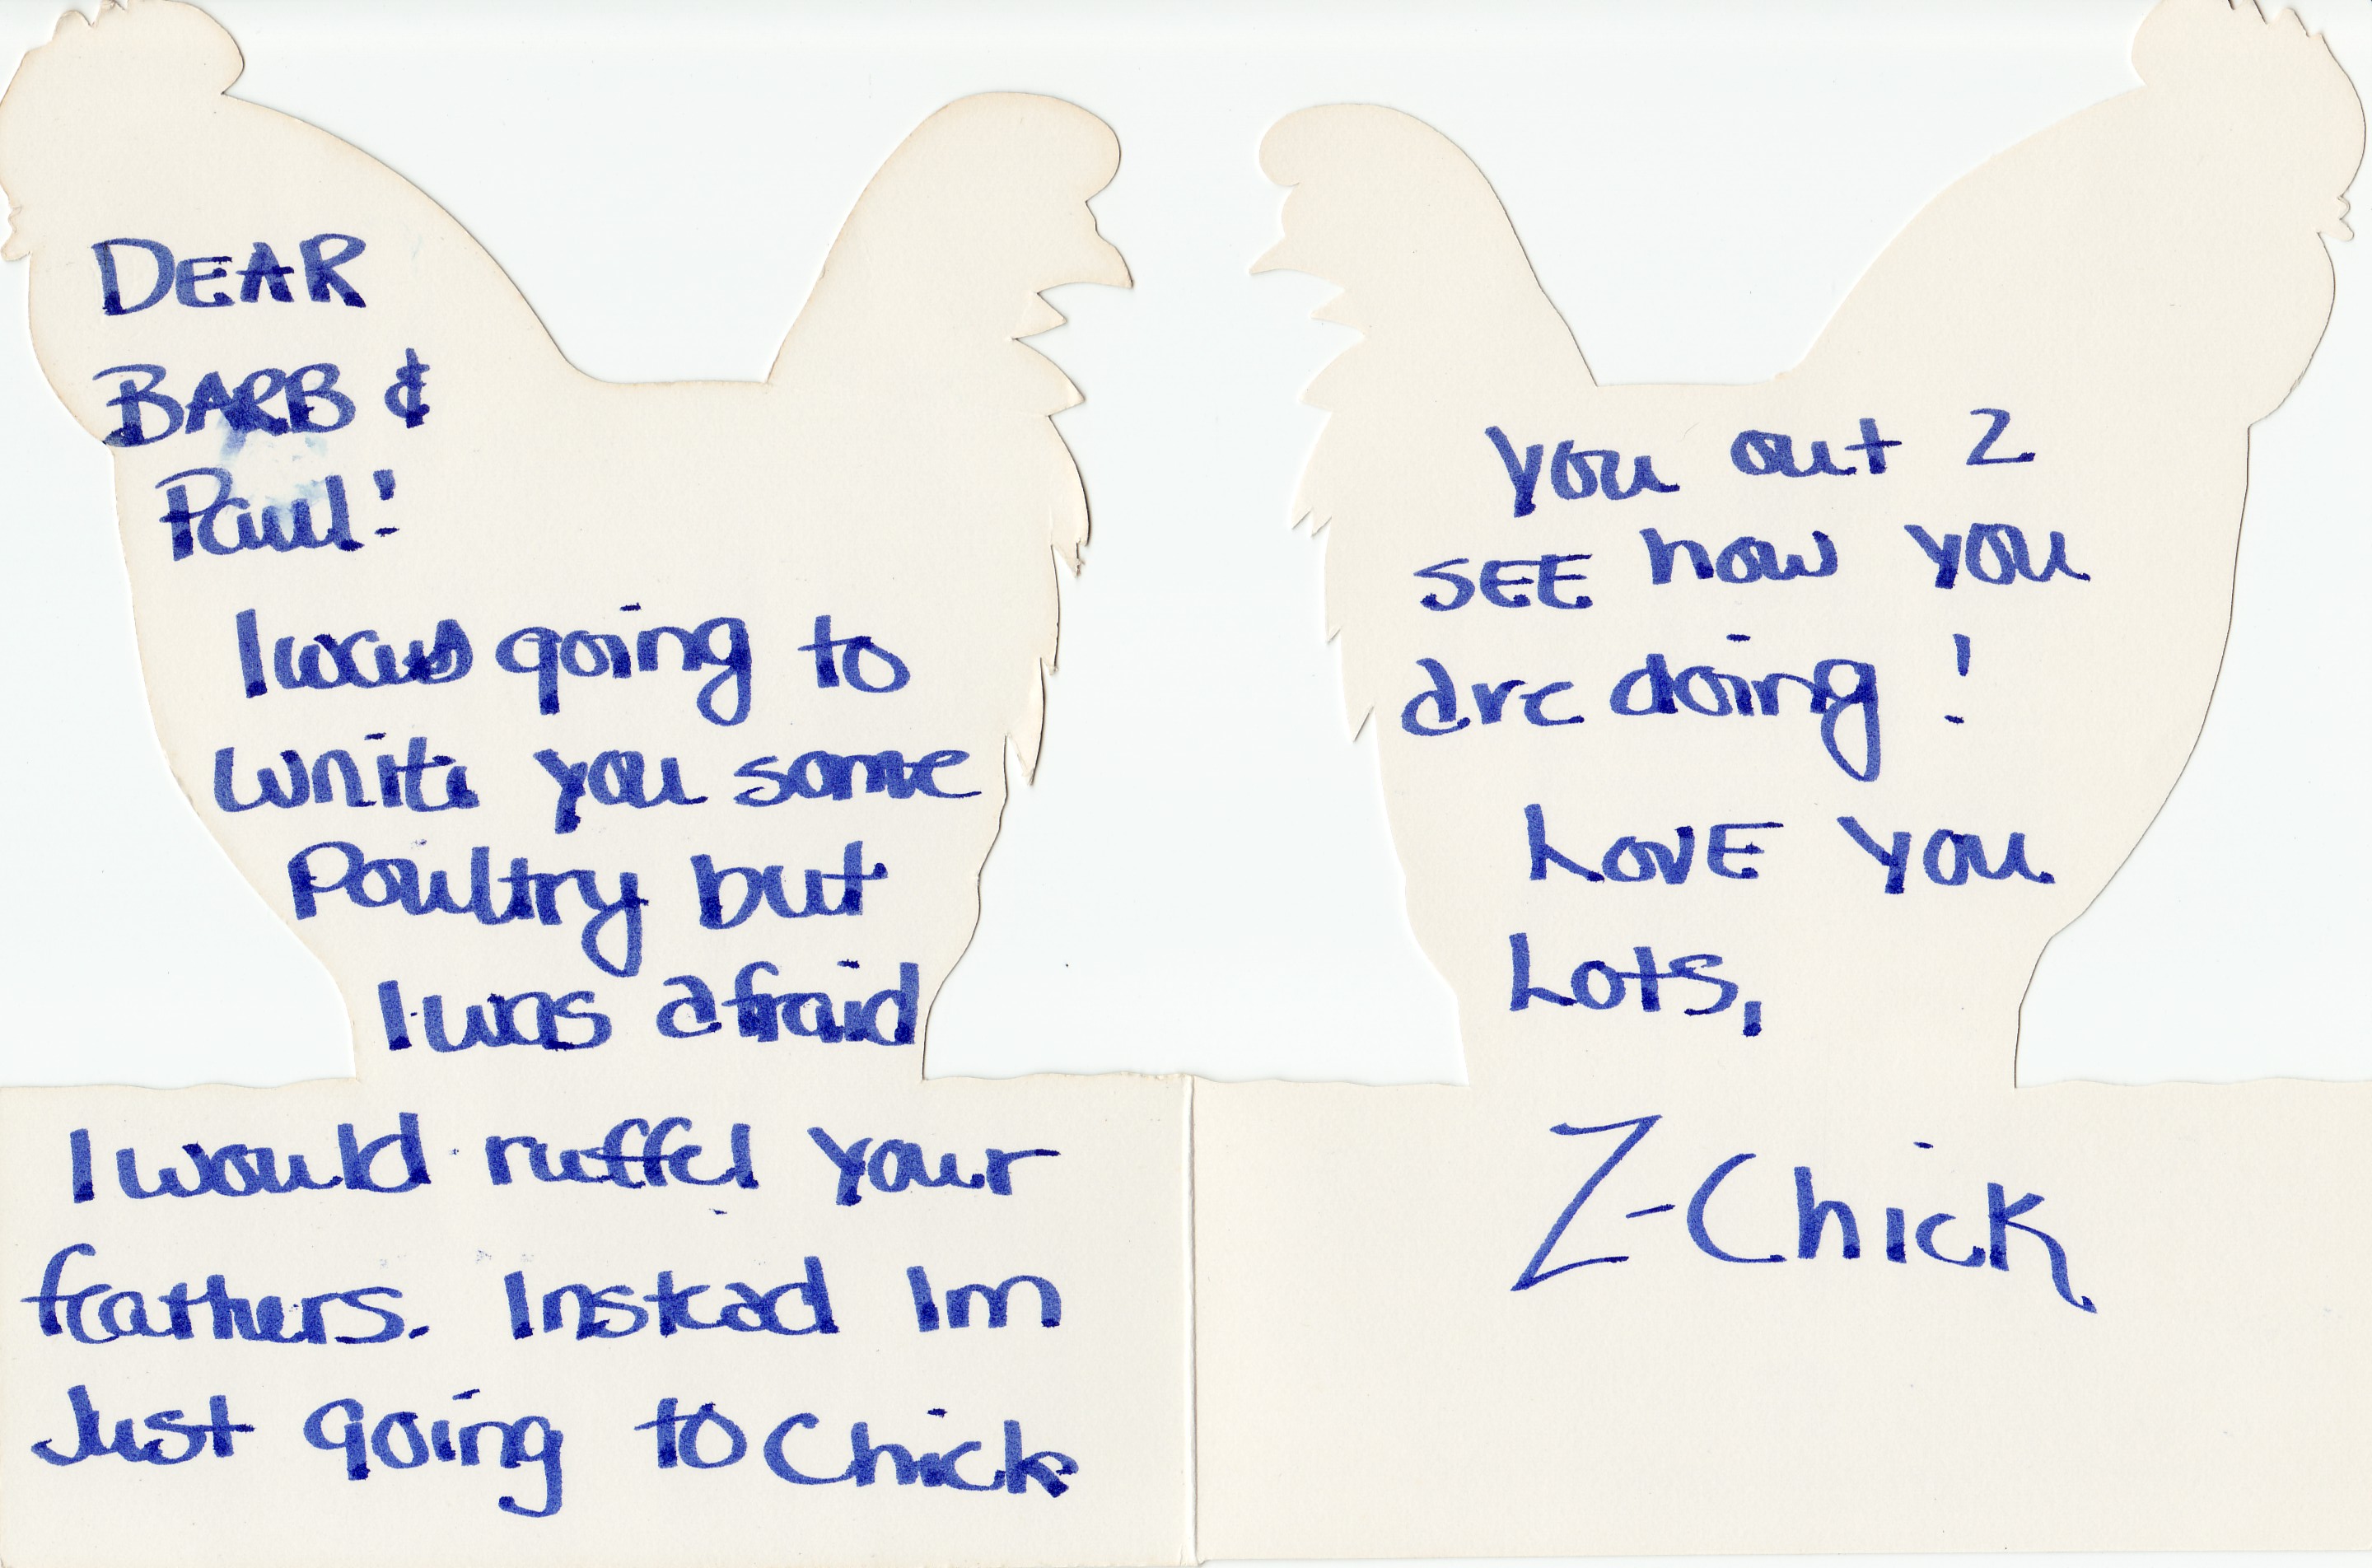 DEAR
BARB &
Paul!
I was going to
write you some
Poultry but
I was afraid
I would ruffel your
feathers. Instead Im
Just going to Chick
you out 2
SEE how you
are doing!
LOVE you
Lots,
Z-Chick